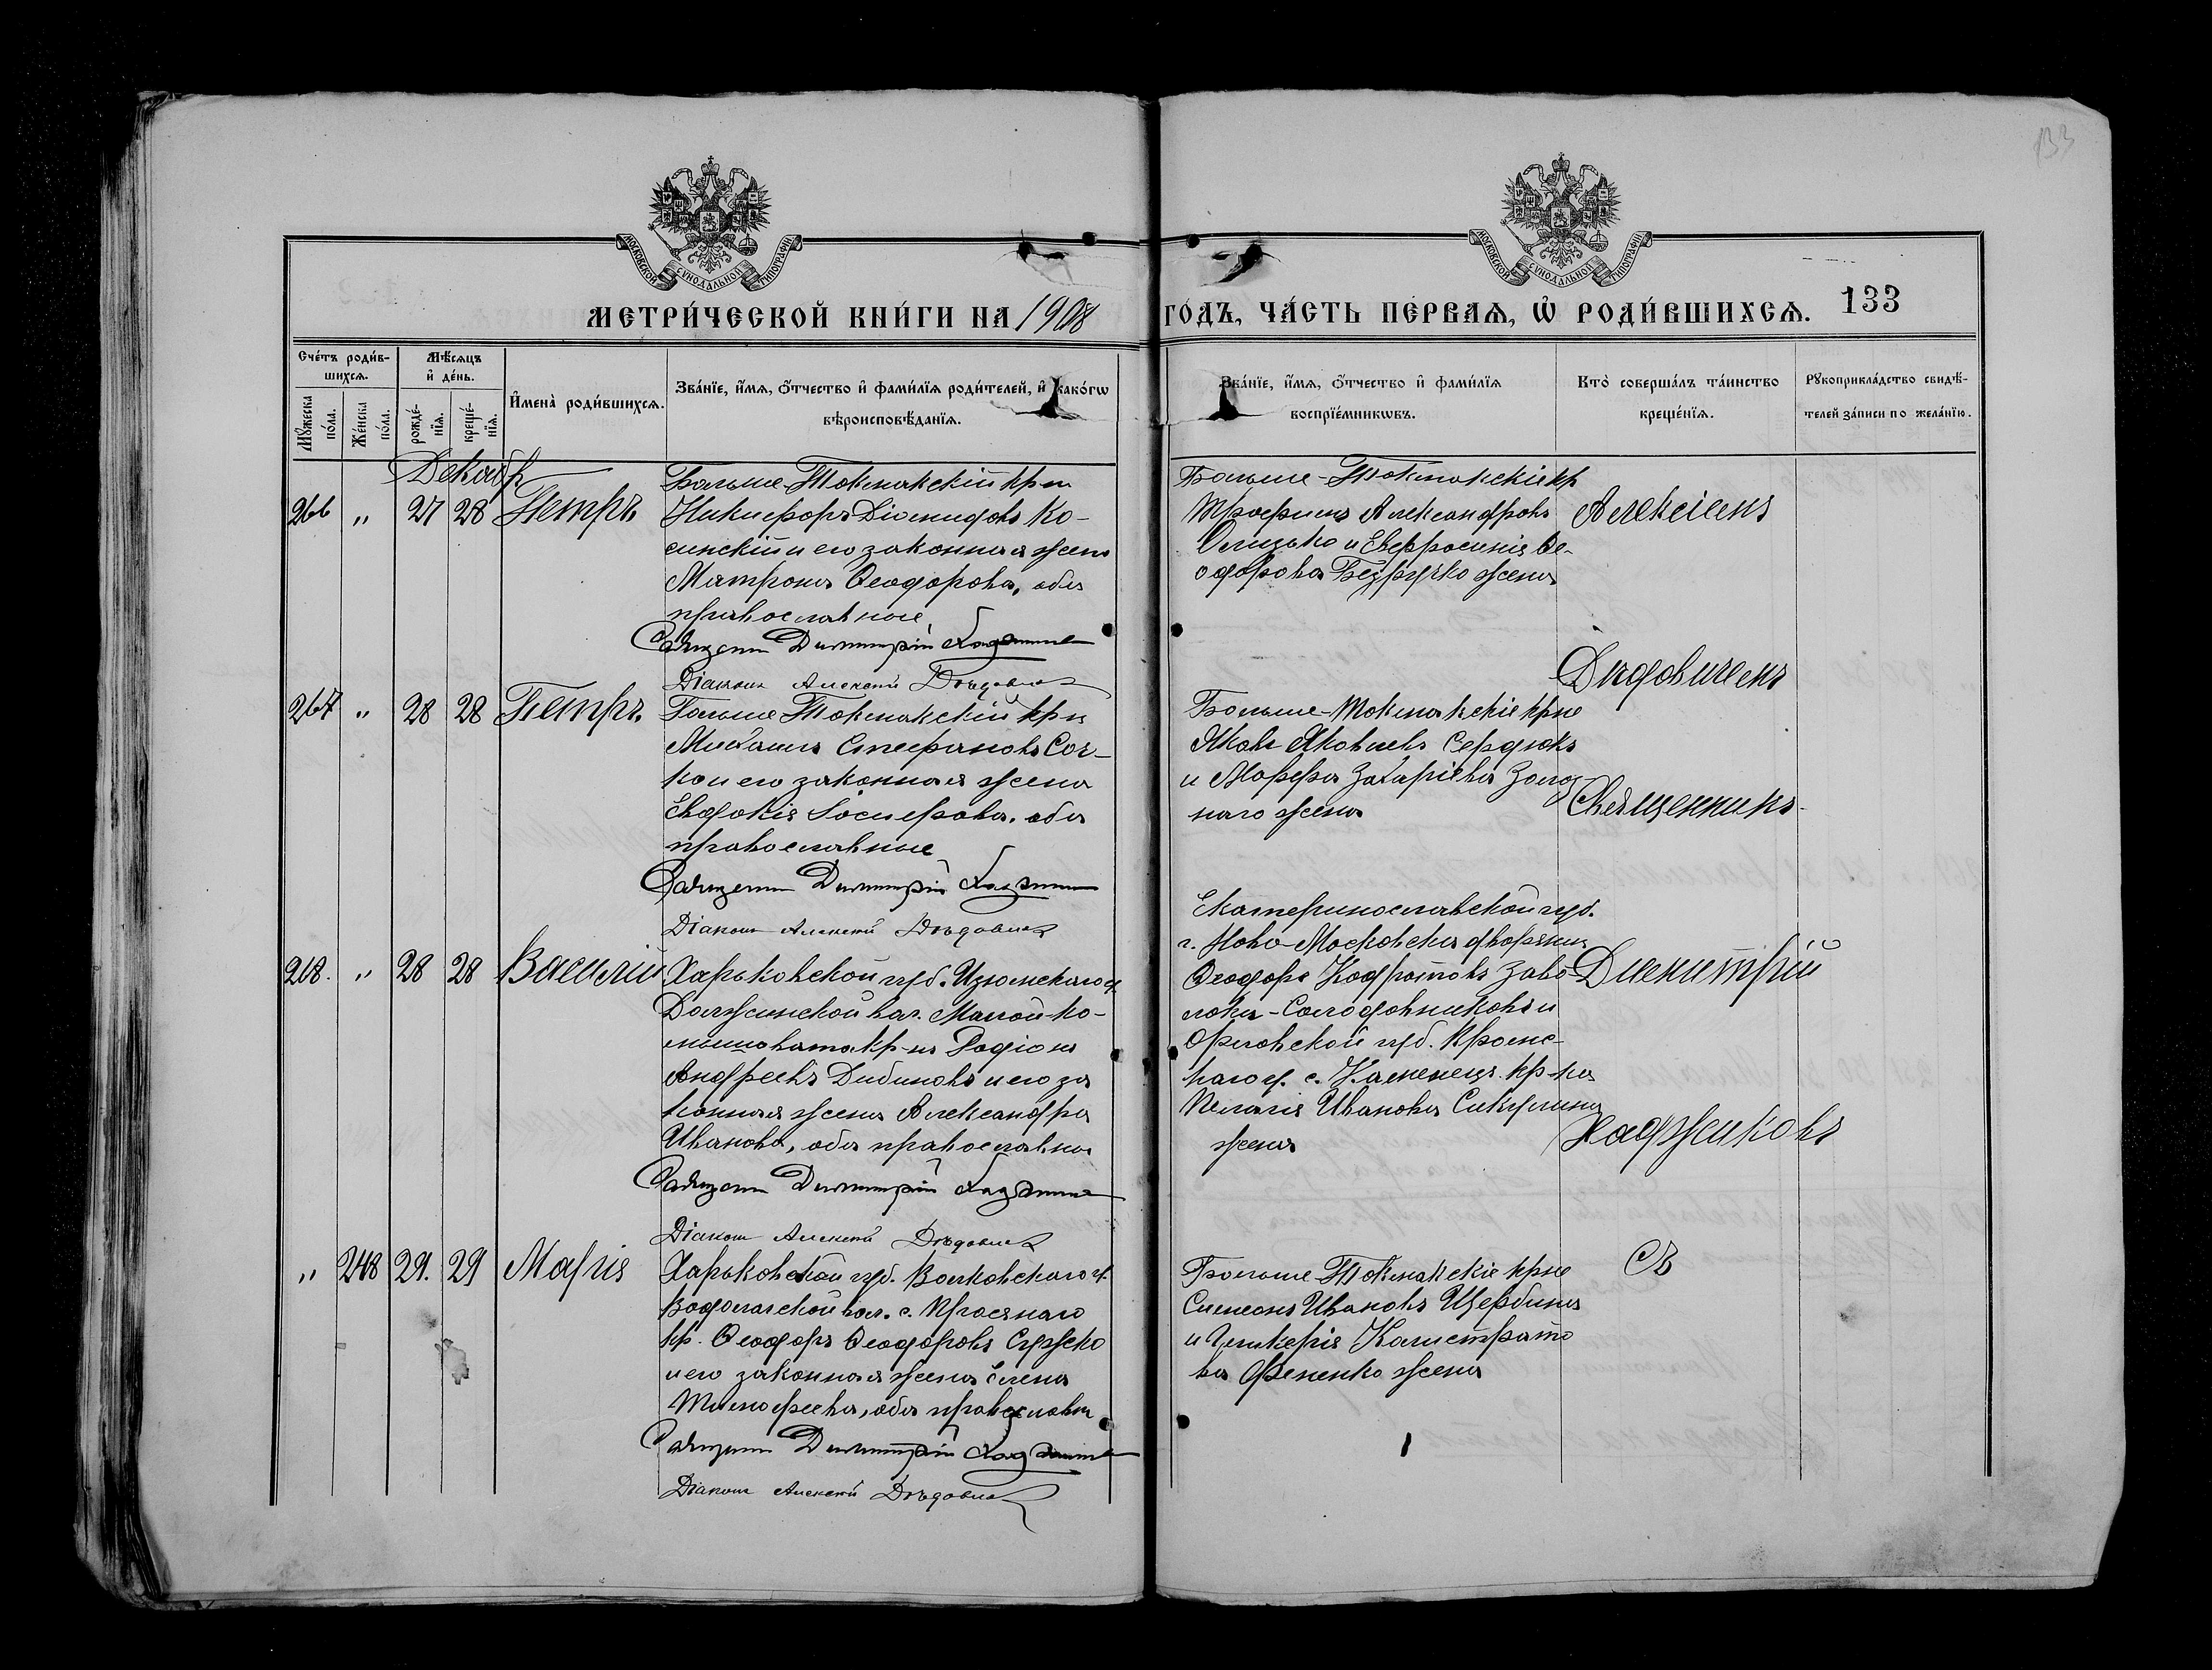 133
МОСКОВСКОЙ СѴНОДАЛЬНОЙ ТИПОГРАФІИ
МОСКОВСКОЙ СѴНОДАЛЬНОЙ ТИПОГРАФІИ
МЕТРИ́ЧЕСКОЙ КНИ́ГИ НА 1908 ГО́ДЪ, ЧА́СТЬ ПЕ́РВАѦ, Ѡ҆ РОДИ́ВШИХСѦ. 133
Сче́тъ роди́в-
шихсѧ.
Мꙋ́жеска по́ла.
Же́нска по́ла.
Мѣ́сѧцъ
и҆ де́нь.
рожде́-
нїѧ.
креще́-
нїѧ.
И҆мена̀ роди́вшихсѧ.
Зва́нїе, и҆́мѧ, ѻ҆́тчество и҆ фами́лїѧ роди́телей, и҆ како́гѡ
вѣроисповѣ́данїѧ.
Зва́нїе, и҆́мѧ, ѻ҆́тчество и҆ фами́лїѧ
воспрїе́мникѡвъ.
Кто̀ соверша́лъ та́инство
креще́нїѧ.
Рꙋкоприкла́дство свидѣ́-
телей за́писи по жела́нїю.
Декабр
266 " 27 28 Петръ
Больше-Токмакскій кр-н
Никифоръ Діомидовъ Ко-
синскій и его законная жена
Матрона Ѳеодорова, оба
православные
Священн Димитрій
Діаконъ Алексій Дѣдович
Больше-Токмакскіе кр
Трофимъ Александровъ
Олизько и Евфросинія Ѳе-
одорова Безручко жена
Алексіемъ
Дѣдовичемъ
267 " 28 28 Петръ
Больше Токмакскій кр-н
Михаилъ Стефановъ Соч-
ко и его законная жена
Евдокія Іосифова, оба
православные
Священн Димитрій
Діаконъ Алексій Дѣдович
Больше-Токмакскіе кр-не
Яковъ Яковлевъ Сердюкъ
и Марфа Захаріева Золоз-
наго жена
Священникъ
268. " 28 28 Василій
Харьковской губ. Изюмскаго у.
Должинской вол. Малой-Ко-
мышоваты кр-нъ Родіонъ
Андреевъ Дибиновъ и его за
конная жена Александра
Иванова, оба православны
Священн Димитрій
Діаконъ Алексій Дѣдович
Екатеринославской губ.
г. Ново-Московска дворянин
Ѳеодоръ Кодратовъ Заво-
лока-Солодовниковъ и
Орловской губ. Кромс-
каго у. с. Каменецъ кр-ка
Пелагія Иванова Сикулина
жена
Димитрій
Хаджиковъ
" 248 29. 29 Марія
Харьковской губ. Волковскаго у.
Водолагской вол. с. Просянаго
кр. Ѳеодоръ Ѳеодоровъ Суржко
и его законная жена Елена
Тимофеева, оба православн
Священн Димитрій
Діаконъ Алексій Дѣдович
Больше-Токмакскіе кр-не
Симеонъ Ивановъ Щербина
и Гликерія Калистрато
ва Фененко жена
Съ